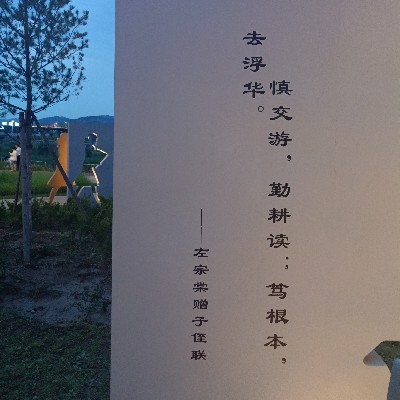 慎交游，勤耕读；笃根本，
去浮华。
——左宗棠赠子侄联